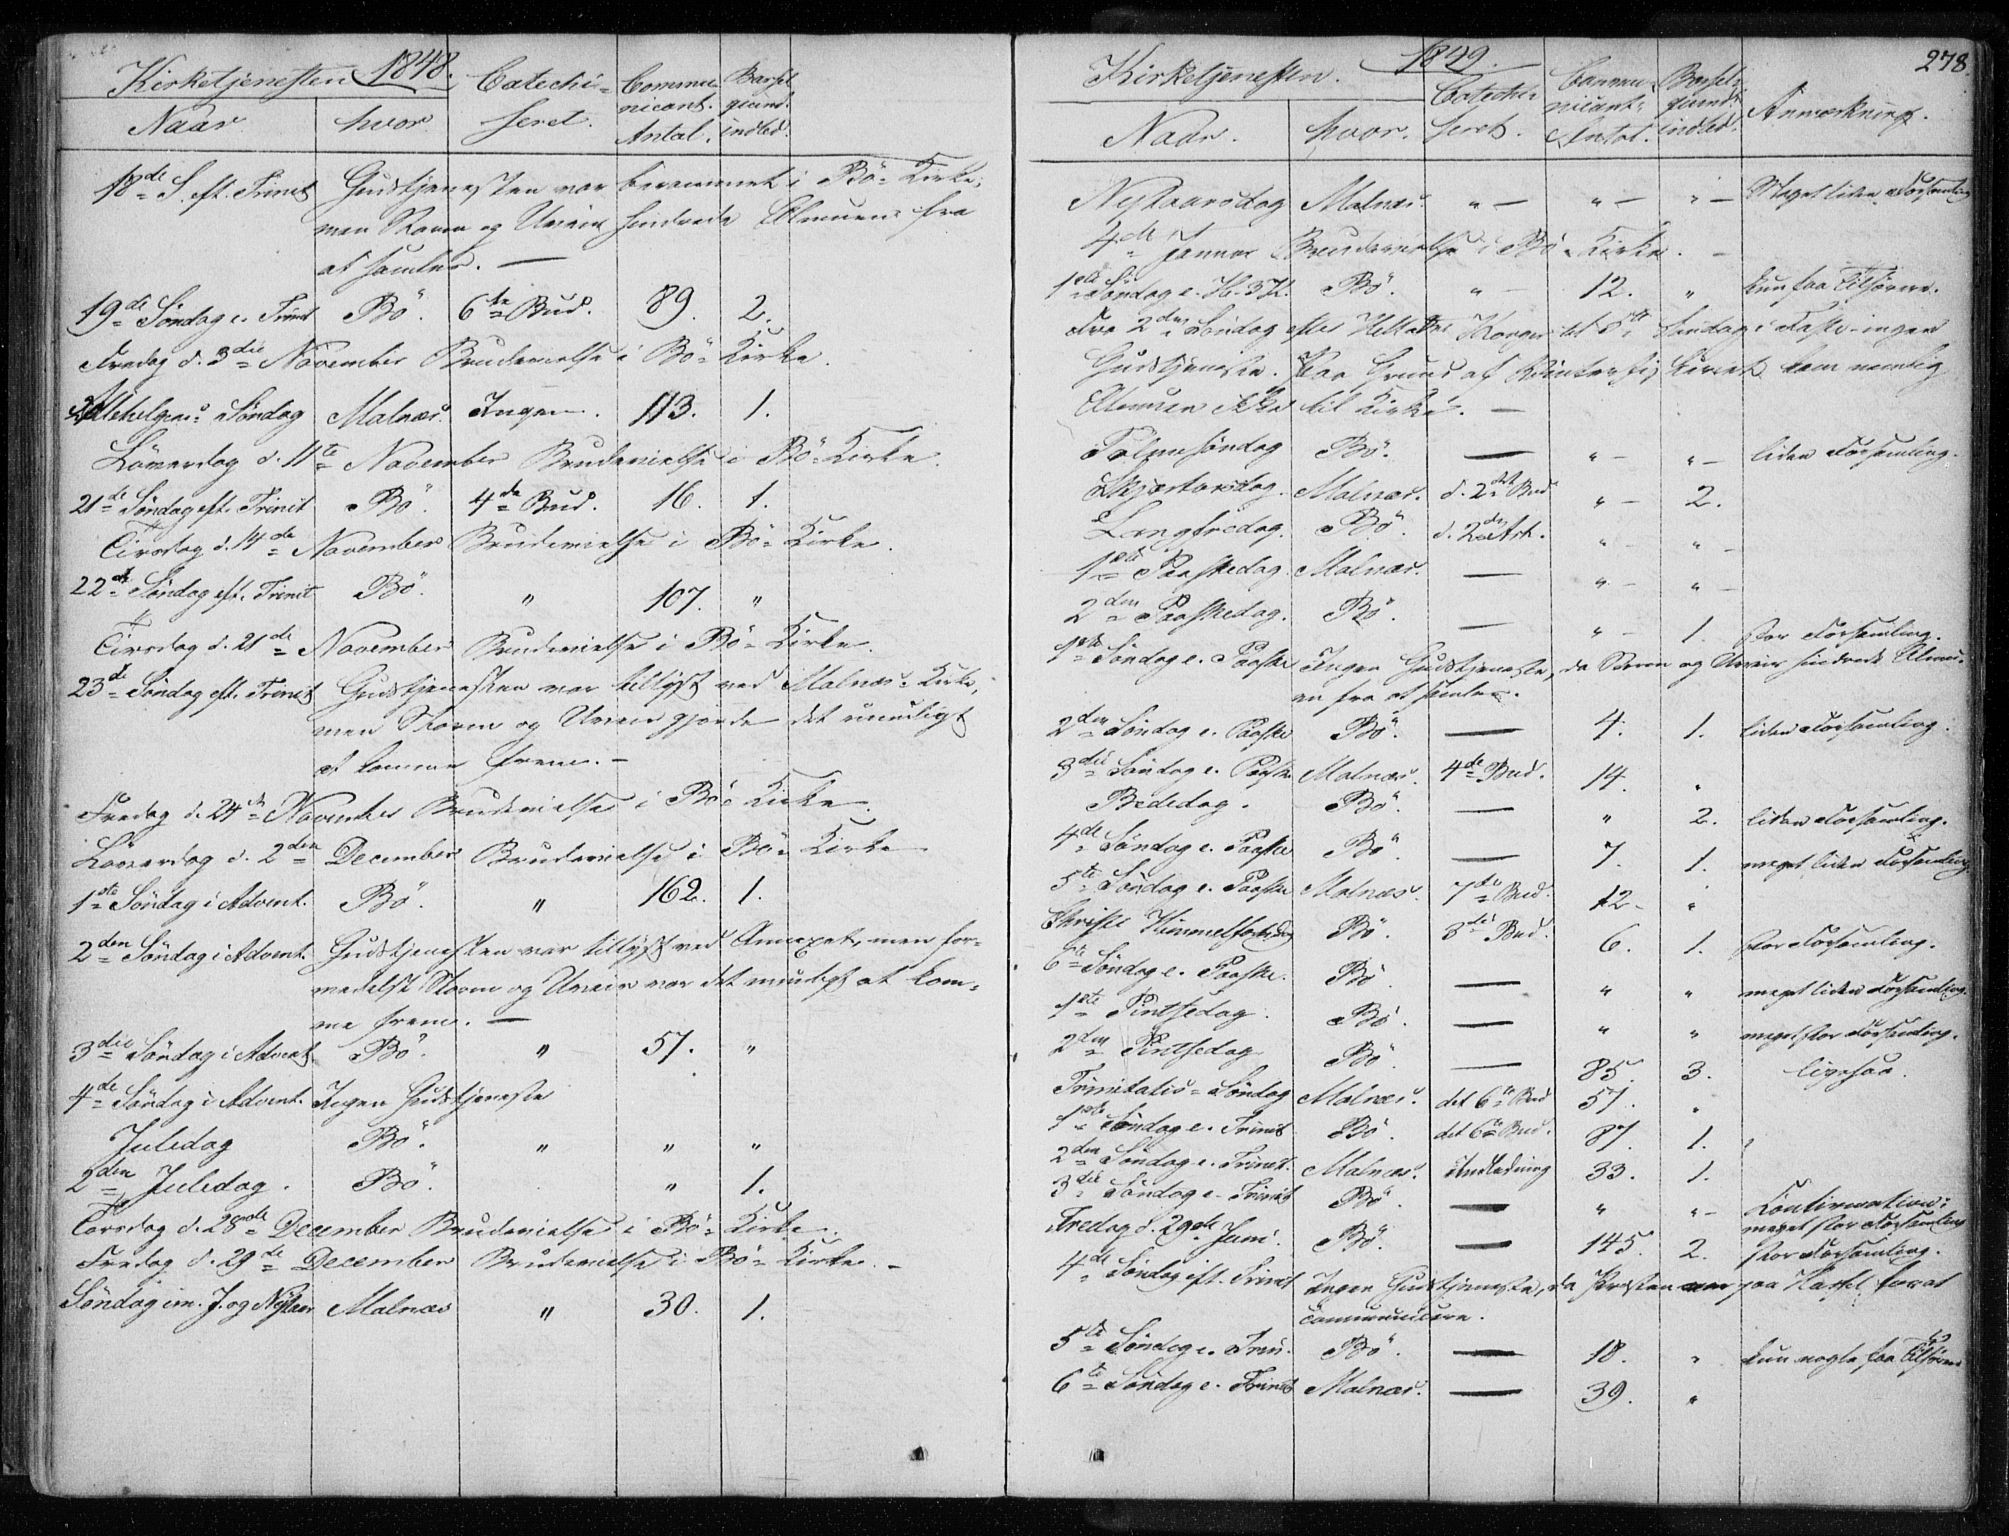 Kirketjenesten 1848. Catechi= Commu= Barsel
Naar hvor seret. nicant. qvind.
Antal. indled.
18de S. eft. Trinit Gudstjenesten var berammet i Bö- Kirke,
men Storm og Uveir hindrede Almuen fra
at samles. —
19de Söndag e. Trinit Bö. 6te Bud. 89. 2.
Fredag d. 3die November Brudevielse i Bö- Kirke.
Allehelgens Söndag Malnæs. Ingen. 113. 1.
Löverdag d. 11te November Brudevielse i Bö- Kirke.
21de Söndag eft. Trinit Bö. 4de Bud. 16. 1.
Tirsdag d. 14de November Brudevielse i Bö- Kirke.
22de Söndag eft. Trinit Bö. " 107. "
Tirsdag d. 21de November Brudevielse i Bö- Kirke.
23de Söndag eft. Trinit Gudstjenesten var tillyst ved Malnæs- Kirke,
men Storm og Uveir gjorde det umuligt
at komme frem. —
Fredag d. 24de November Brudevielse i Bö- Kirke.
Löverdag d. 2den December Brudevielse i Bö- Kirke.
1ste Söndag i Advent. Bö. " 162. 1.
2den Söndag i Advent. Gudstjenesten var tillyst ved Annexet, men for-
medelst Storm og Uveir var det umuligt at kom-
me frem. —
3die Söndag i Advent Bö. " 57. "
4de Söndag i Advent. Ingen Gudstjeneste
Juledag Bö. " " "
2den Juledag. Bö. " 1.
Torsdag d. 28de December Brudevielse i Bö- Kirke.
Fredag d. 29de December Brudevielse i Bö- Kirke. —
Söndag im. J. og Nytaar Malnæs " 30. 1.
278
Kirketjenesten. 1849. Catechi- Commu- Barsel-
Naar. hvor. seret. nicant- qvind- Anmærkning.
Antal. indled.
Nytaarsdag Malnæs. " — " — " — Meget liden Forsamling
4de Januar Brudevielse i Bö- Kirke. —
1ste Söndag e. H. 3 K. Bö. " — 12. " kun faa Tilhörere.
Fra 2den Söndag efter Hellig Tre Konger til 5te Söndag i Faste ingen
Gudstjeneste. Paa Grund af Vinterfiskeriet kom nemlig
Almuen ikke til Kirke. —
Palmesöndag Bö. — " — " — liden Forsamling.
Skjærtorsdag. Malnæs. d. 2det Bud " — 2.
Langfredag. Bö. d. 2den Art. " — " —
1ste Paaskedag. Malnæs. — " — " —
2den Paaskedag. Bö. — " — 1. stor Forsamling.
1ste Söndag e. Paaske Ingen Gudstjeneste, da Storm og Uveir hindrede Almu-
en fra at samles.
2den Söndag e. Paaske Bö. — 4. 1. liden Forsamling.
3die Söndag e. Paaske Malnæs. 4de Bud. 14. "
Bededag. Bö. — " 2. liden Forsamling.
4de Söndag e. Paaske Bö. — 7. 1. meget liden Forsamling
5te Söndag e. Paaske Malnæs. 7de Bud. 12. "
Christi Himmelfartsdag Bö. 8de Bud. 6. 1. stor Forsamling.
6te Söndag e. Paaske. Bö. — " " meget liden Forsamling.
1ste Pintsedag. Bö. — " " meget stor Forsamling.
2den Pintsedag Bö. — 85. 3. ligesaa.
Trinitatis- Söndag Malnæs. det 6te Bud 57. "
1ste Söndag e. Trinit Bö. det 6te Bud. 87. 1.
2den Söndag e. Trinit. Malnæs. Indledning 33. 1.
3die Söndag e. Trinit Bö. — " " — Confirmation:
meget stor Forsamling
Fredag d. 29de Juni. Bö. — 145. 2. stor Forsamling.
4de Söndag eft. Trinit Ingen Gudstjeneste, da Præsten var paa Hassel for at
communicere.
5te Söndag e. Trin. Bö. — 18. " kun nogle faa Tilhörere
6te Söndag e. Trinit Malnæs. — 39. "